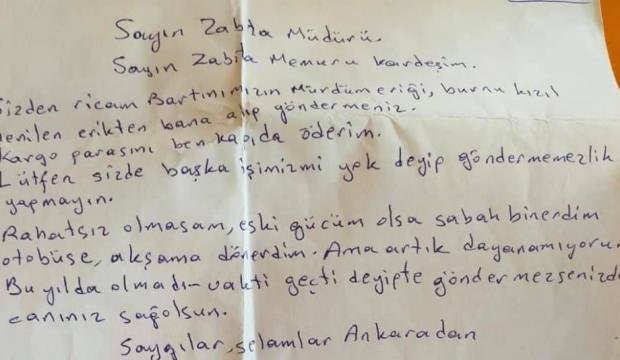 Sayın Zabta Müdürü.
Sayın Zabıta Memuru kardeşim.
Sizden ricam Bartınımızın Mürdüm eriği, burnu kızıl
denilen erikten bana alıp göndermeniz.
Kargo parasını ben kapıda öderim.
Lütfen sizde başka işimizmi yok deyip göndermemezlik
yapmayın.
Rahatsız olmasam, eski gücüm olsa sabah binerdim
otobüse, akşama dönerdim. Ama artık dayanamıyoru
Bu yılda olmadı-vakti geçti deyipte göndermezsenizde
canınız sağolsun.
Saygılar, selamlar Ankaradan